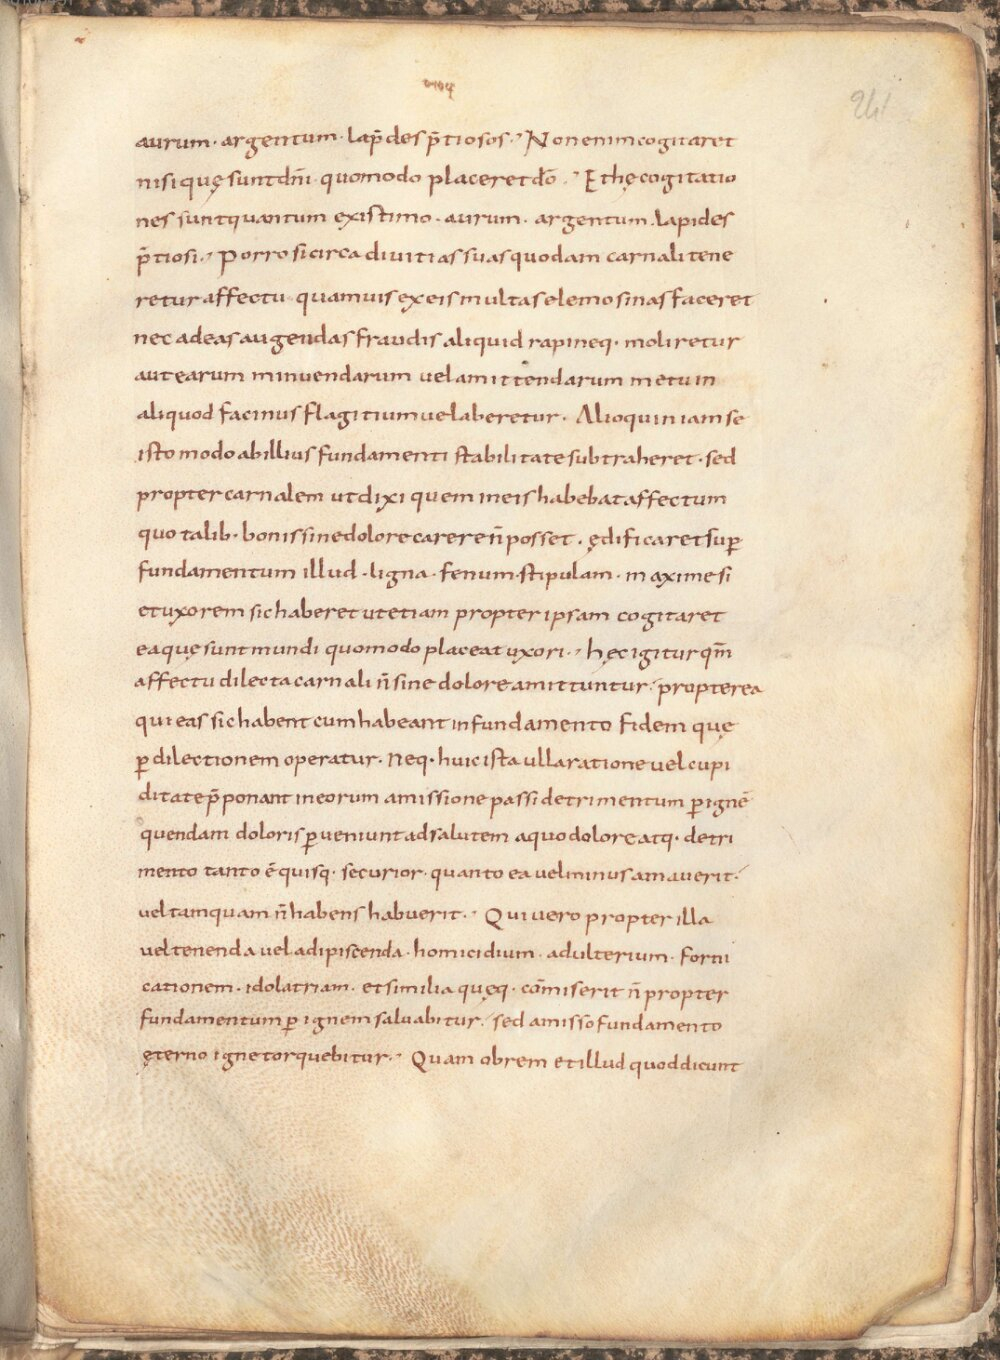 aurum · argentum · lap̄des p̄tiosos ·' Non enim cogitaret
nisi quę sunt dñi · quomodo placeret dō ·' Et hę cogitatio
nes sunt quantum existimo · aurum · argentum · lapides
p̄tiosi ·' Porro si circa divitias suas quodam carnali tene
retur affectu · quamuis ex eis multas elemosinas faceret
nec ad eas augendas fraudis aliquid rapineq· moliretur
aut earum minuendarum vel amittendarum metu in
aliquod facinus flagitium ve laberetur · Alioquin iam se
isto modo ab illius fundamenti stabilitate subtraheret · sed
propter carnalem ut dixi quem in eis habebat affectum
quo talib· bonis sine dolore carere ñ posset · ędificaret sup̱
fundamentum illud · ligna · fenum · stipulam · maxime si
et uxorem sic haberet ut etiam propter ipsam cogitaret
ea quę sunt mundi quomodo placeat uxori ·' hęc igitur qm̄
affectu dilecta carnali ñ sine dolore amittuntur ·' propterea
qui eas sic habent cum habeant in fundamento fidem quę
p̱ dilectionem operatur · Neq· huic ista ulla ratione vel cupi
ditate p̄ponant in eorum amissione passi detrimentum p̱ ignē
quendam doloris p̱veniunt ad salutem a quo dolore atq· detri
mento tanto ē quisq· securior · quanto ea vel minus amaverit ·'
vel tamquam ñ habens habuerit ·' Qui vero propter illa
vel tenenda vel adipiscenda · homicidium · adulterium · forni
cationem · idolatriam · et similia quęq· cōmiserit ñ propter
fundamentum p̱ ignem salvabitur ·' sed amisso fundamento
ęterno igne torquebitur ·' Quam obrem et illud quod dicunt